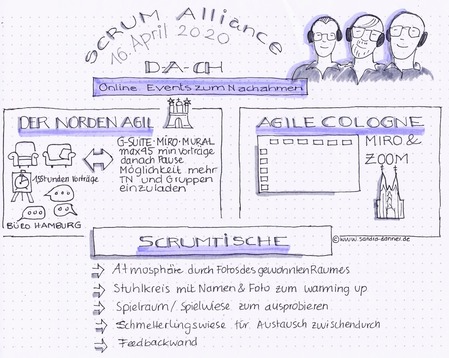 SCRUM Alliance
16. April 2020
D-A-CH
Online Events zum Nachahmen
DER NORDEN AGIL
G-SUITE·MIRO·MURAL
max 45 min Vorträge
danach Pause
Möglichkeit mehr
TN und Gruppen
einzuladen
Stunden Vorträge
BÜRO HAMBURG
AGILE COLOGNE
MIRO &
ZOOM
©www.sandra-danner.de
SCRUMTISCHE
Atmosphäre durch Fotos des gewohnten Raumes
Stuhlkreis mit Namen & Foto zum warming up
Spielraum/Spielwiese zum ausprobieren
Schmetterlingswiese für Austausch zwischendurch
Feedbackwand